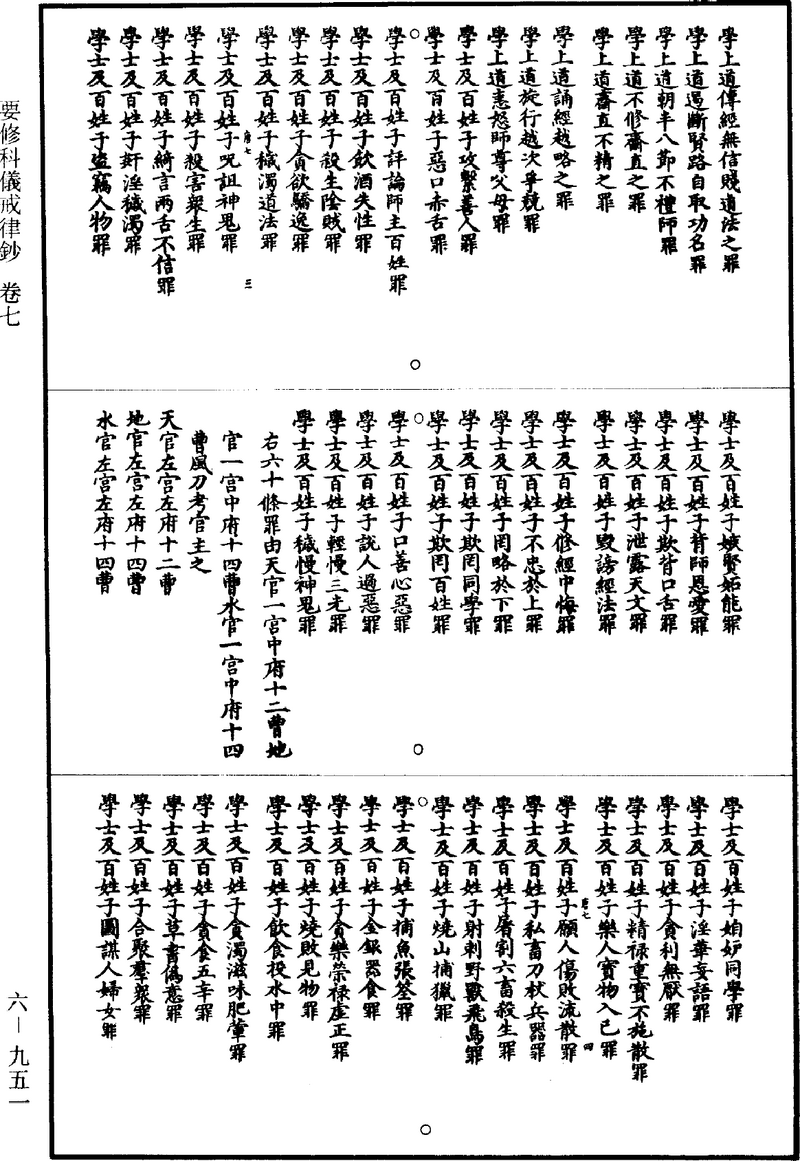 學上道傳經無信賤道法之罪
學上道遏斷賢路自取功名罪
學上道朝半八節不禮師罪
學上道不修齋直之罪
學上道齋直不精之罪
學上道誦經越略之罪
學上道旋行越次爭競罪
學上道恚怨師尊父母罪
學士及百姓子攻擊善人罪
學士及百姓子惡口赤舌罪
學士及百姓子評論師主百姓罪
學士及百姓子飲酒失性罪
學士及百姓子殺生陰賊罪
學士及百姓子貪欲驕逸罪
學士及百姓子穢濁道法罪
唐七 三
學士及百姓子呪詛神鬼罪
學士及百姓子殺害衆生罪
學士及百姓子綺言兩舌不信罪
學士及百姓子姧淫穢濁罪
學士及百姓子盜竊人物罪
學士及百姓子嫉賢妬能罪
學士及百姓子背師恩愛罪
學士及百姓子欺背口舌罪
學士及百姓子泄露天文罪
學士及百姓子毀謗經法罪
學士及百姓子修經中悔罪
學士及百姓子不忠於上罪
學士及百姓子罔略於下罪
學士及百姓子欺罔同學罪
學士及百姓子欺罔百姓罪
學士及百姓子口善心惡罪
學士及百姓子說人過惡罪
學士及百姓子輕慢三光罪
學士及百姓子穢慢神鬼罪
右六十條罪由天官一宮中府十二曹地
官一宮中府十四曹水官一宮中府十四
曹風刀考官主之
天官左宮左府十二曹
地官左宮左府十四曹
水官左宮左府十四曹
學士及百姓子媢妒同學罪
學士及百姓子淫華妄語罪
學士及百姓子貪利無厭罪
學士及百姓子積祿重寶不施散罪
學士及百姓子樂人寶物入己罪
唐七 四
學士及百姓子願人傷敗流散罪
學士及百姓子私畜刀杖兵器罪
學士及百姓子屠割六畜殺生罪
學士及百姓子射刺野獸飛鳥罪
學士及百姓子燒山捕獵罪
學士及百姓子捕魚張筌罪
學士及百姓子金銀器食罪
學士及百姓子貪樂榮祿虛正罪
學士及百姓子燒敗見物罪
學士及百姓子飲食投水中罪
學士及百姓子貪濁滋味肥葷罪
學士及百姓子貪食五辛罪
學士及百姓子草書僞意罪
學士及百姓子合聚羣衆罪
學士及百姓子圖謀人婦女罪
要修科儀戒律鈔 卷七
六—九五一